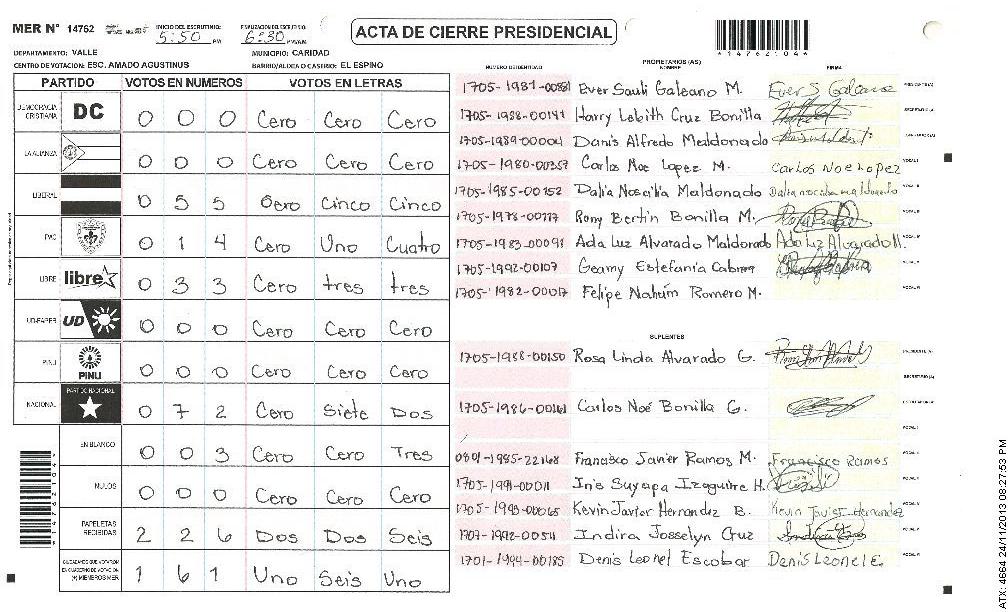 MER N° 14762 INICIO DEL ESCRUTINIO: 5:50 PM FINALIZACION DEL ESCRUTINIO: 6:30 PM/AM ACTA DE CIERRE PRESIDENCIAL
*14762104*
DEPARTAMENTO: VALLE MUNICIPIO: CARIDAD
CENTRO DE VOTACION: ESC. AMADO AGUSTINUS BARRIO/ALDEA O CASERIO: EL ESPINO
PARTIDO VOTOS EN NUMEROS VOTOS EN LETRAS
DEMOCRACIA CRISTIANA DC 0 0 0 Cero Cero Cero
LA ALIANZA 0 0 0 Cero Cero Cero
LIBERAL 0 5 5 Cero Cinco Cinco
PAC 0 1 4 Cero Uno Cuatro
LIBRE libre 0 3 3 Cero tres tres
UD-FAPER UD 0 0 0 Cero Cero Cero
PINU PINU 0 0 0 Cero Cero Cero
NACIONAL PARTIDO NACIONAL 0 7 2 Cero Siete Dos
EN BLANCO 0 0 3 Cero Cero Tres
NULOS 0 0 0 Cero Cero Cero
PAPELETAS RECIBIDAS 2 2 6 Dos Dos Seis
CIUDADANOS QUE VOTARON EN CUADERNO DE VOTACION (+) MIEMBROS MER 1 6 1 Uno Seis Uno
PROPIETARIOS (AS)
NUMERO DE IDENTIDAD NOMBRE FIRMA
Ever Sauli Galeano M. Ever S Galeano PRESIDENTE(A)
1705-1988-00141 Harry Lebith Cruz Bonilla SECRETARIO(A)
1705-1989-00004 Danis Alfredo Maldonado
1705-1980-00257 Carlos Noe Lopez M. Carlos Noe Lopez VOCAL I
1705-1985-00152 Dalia Noscilia Maldonado VOCAL II
1705-1978-00117 Rony Bertin Bonilla M.
1705-1983-00091 Ada Luz Alvarado Maldorado Ada Luz Alvarado M.
1705-1992-00107 Geamy Estefania Cabrera
1705-1982-00017 Felipe Nahúm Romero M.
SUPLENTES
1705-1988-00150 Rosa Linda Alvarado G. PRESIDENTE (A)
SECRETARIO(A)
Carlos Noé Bonilla G.
VOCAL I
0801-1985-22168 Francisco Javier Ramos M. Francisco Ramos
1705-1991-00011 Iris Suyapa Izaguirre H.
1705-1993-00065 Kevin Javier Hernandez B. Kevin Javier Hernandez
1707-1992-0054 Indira Josselyn Cruz
1701-1994-00185 Denis Leonel Escobar Denis Leonel E.
ATX: 4664 24/11/2013 08:27:53 PM